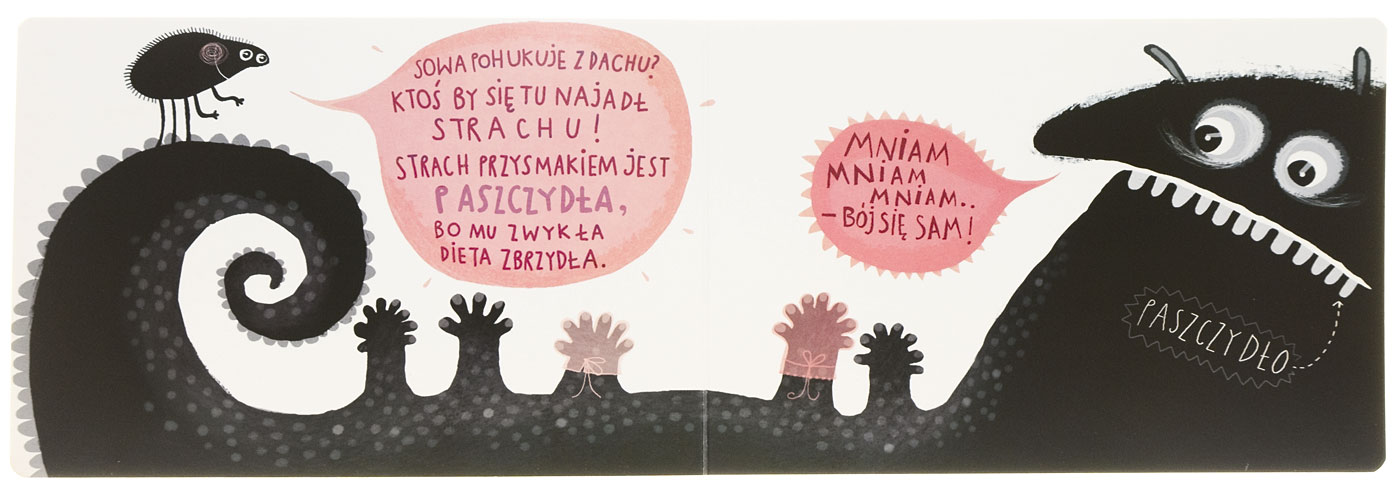 SOWA POHUKUJE Z DACHU?
KTOŚ BY SIĘ TU NAJADŁ
STRACHU!
STRACH PRZYSMAKIEM JEST
PASZCZYDŁA,
BO MU ZWYKŁA
DIETA ZBRZYDŁA.
MNIAM
MNIAM
MNIAM..
– BÓJ SIĘ SAM!
PASZCZYDŁO